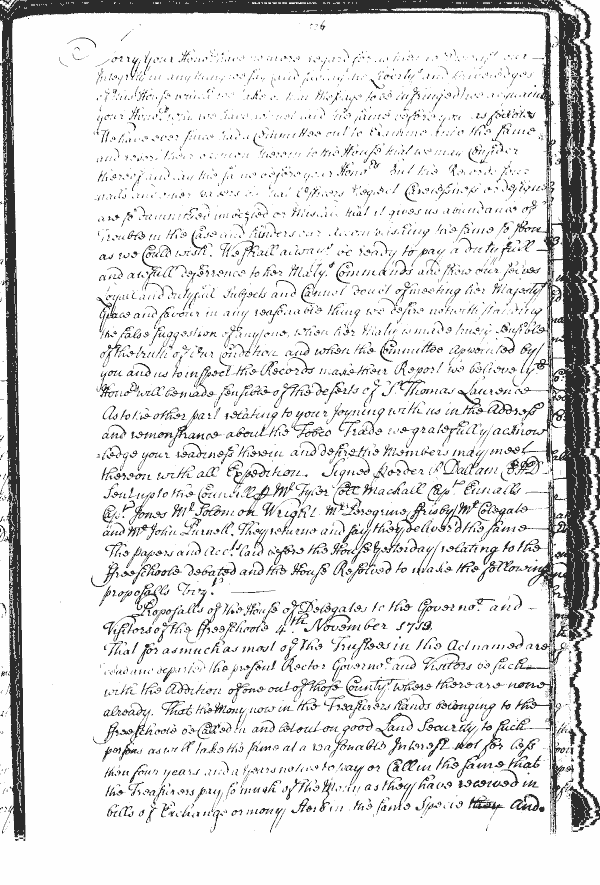 Sorry your Honrs have no more regard for us than to Doubt our
Integrity in any thing we say and saving the Liberty and Priviledges
of this House which we take
your Honrs we have
We have ever since had a Committee out to Examine into the same
and report their opinion therein to the House that we may Consider
thereof and lay the same before your Honrs But the Records Jour
nalls and other papers by Officers Neglect Carelessness or designe
are so damnified imbezled or mislaid that it gives us abundance of
trouble in the Case and hinders our Accomplishing the same so soon
as we Could wish. We shall alwayes be ready to pay a dutyfull
and awfull deference to her Matys Commands and shew our selves
Loyall and dutyfull Subjects and Cannot doubt of meeting her Majestys
Grace and favour in any reasonable thing we desire notwithstanding
the false suggestion of any one, when her Maty is made truely sensible
of the truth of Our Condition and when the Committee apointed by
you and us to inspect the Records make their Report we believe yr
Honrs will be made sensible of the deserts of Sr Thomas Laurence
As to the other part relating to your Joyning with us in the Address
and remonstrance about the Tobco Trade we gratefully acknow
ledge your readiness therein and desire the Members may meet
thereon with all Expedition. Signed p order R Dallam Cl H D
Sent up to the Councill p Mr Tyler Coll Mackall Capt Ennalls
Capt Jones Mr Solomon Wright Mr Peregrine Frisby Mr Colegate
and Mr John Purnell. They returne and say they delivered the same
The papers and acct Laid before the House yesterday relating to the
ffreeschoole debated and the House Resolved to make the following
proposalls Vizt
Proposalls of the House of Delegates to the Governor and
Visitors of the ffreeschoole 4th November 1713.
That for as much as most of the Trustees in the Act named are
dead and departed the present Rector Governors and Visitors be such
with the Addition of one out of those Countys where there are none
already. That the Mony now in the Treasurers hands belonging to the
ffreeschoole be Called in and let out on good Land Security to such
persons as will take the same at a reasonable Interest not for less
then four years and a years notice to pay or Call in the same that
the Treasurers pay so much of the Mony as they have received in
bills of Exchange or mony Sterl in the same Specie they and.